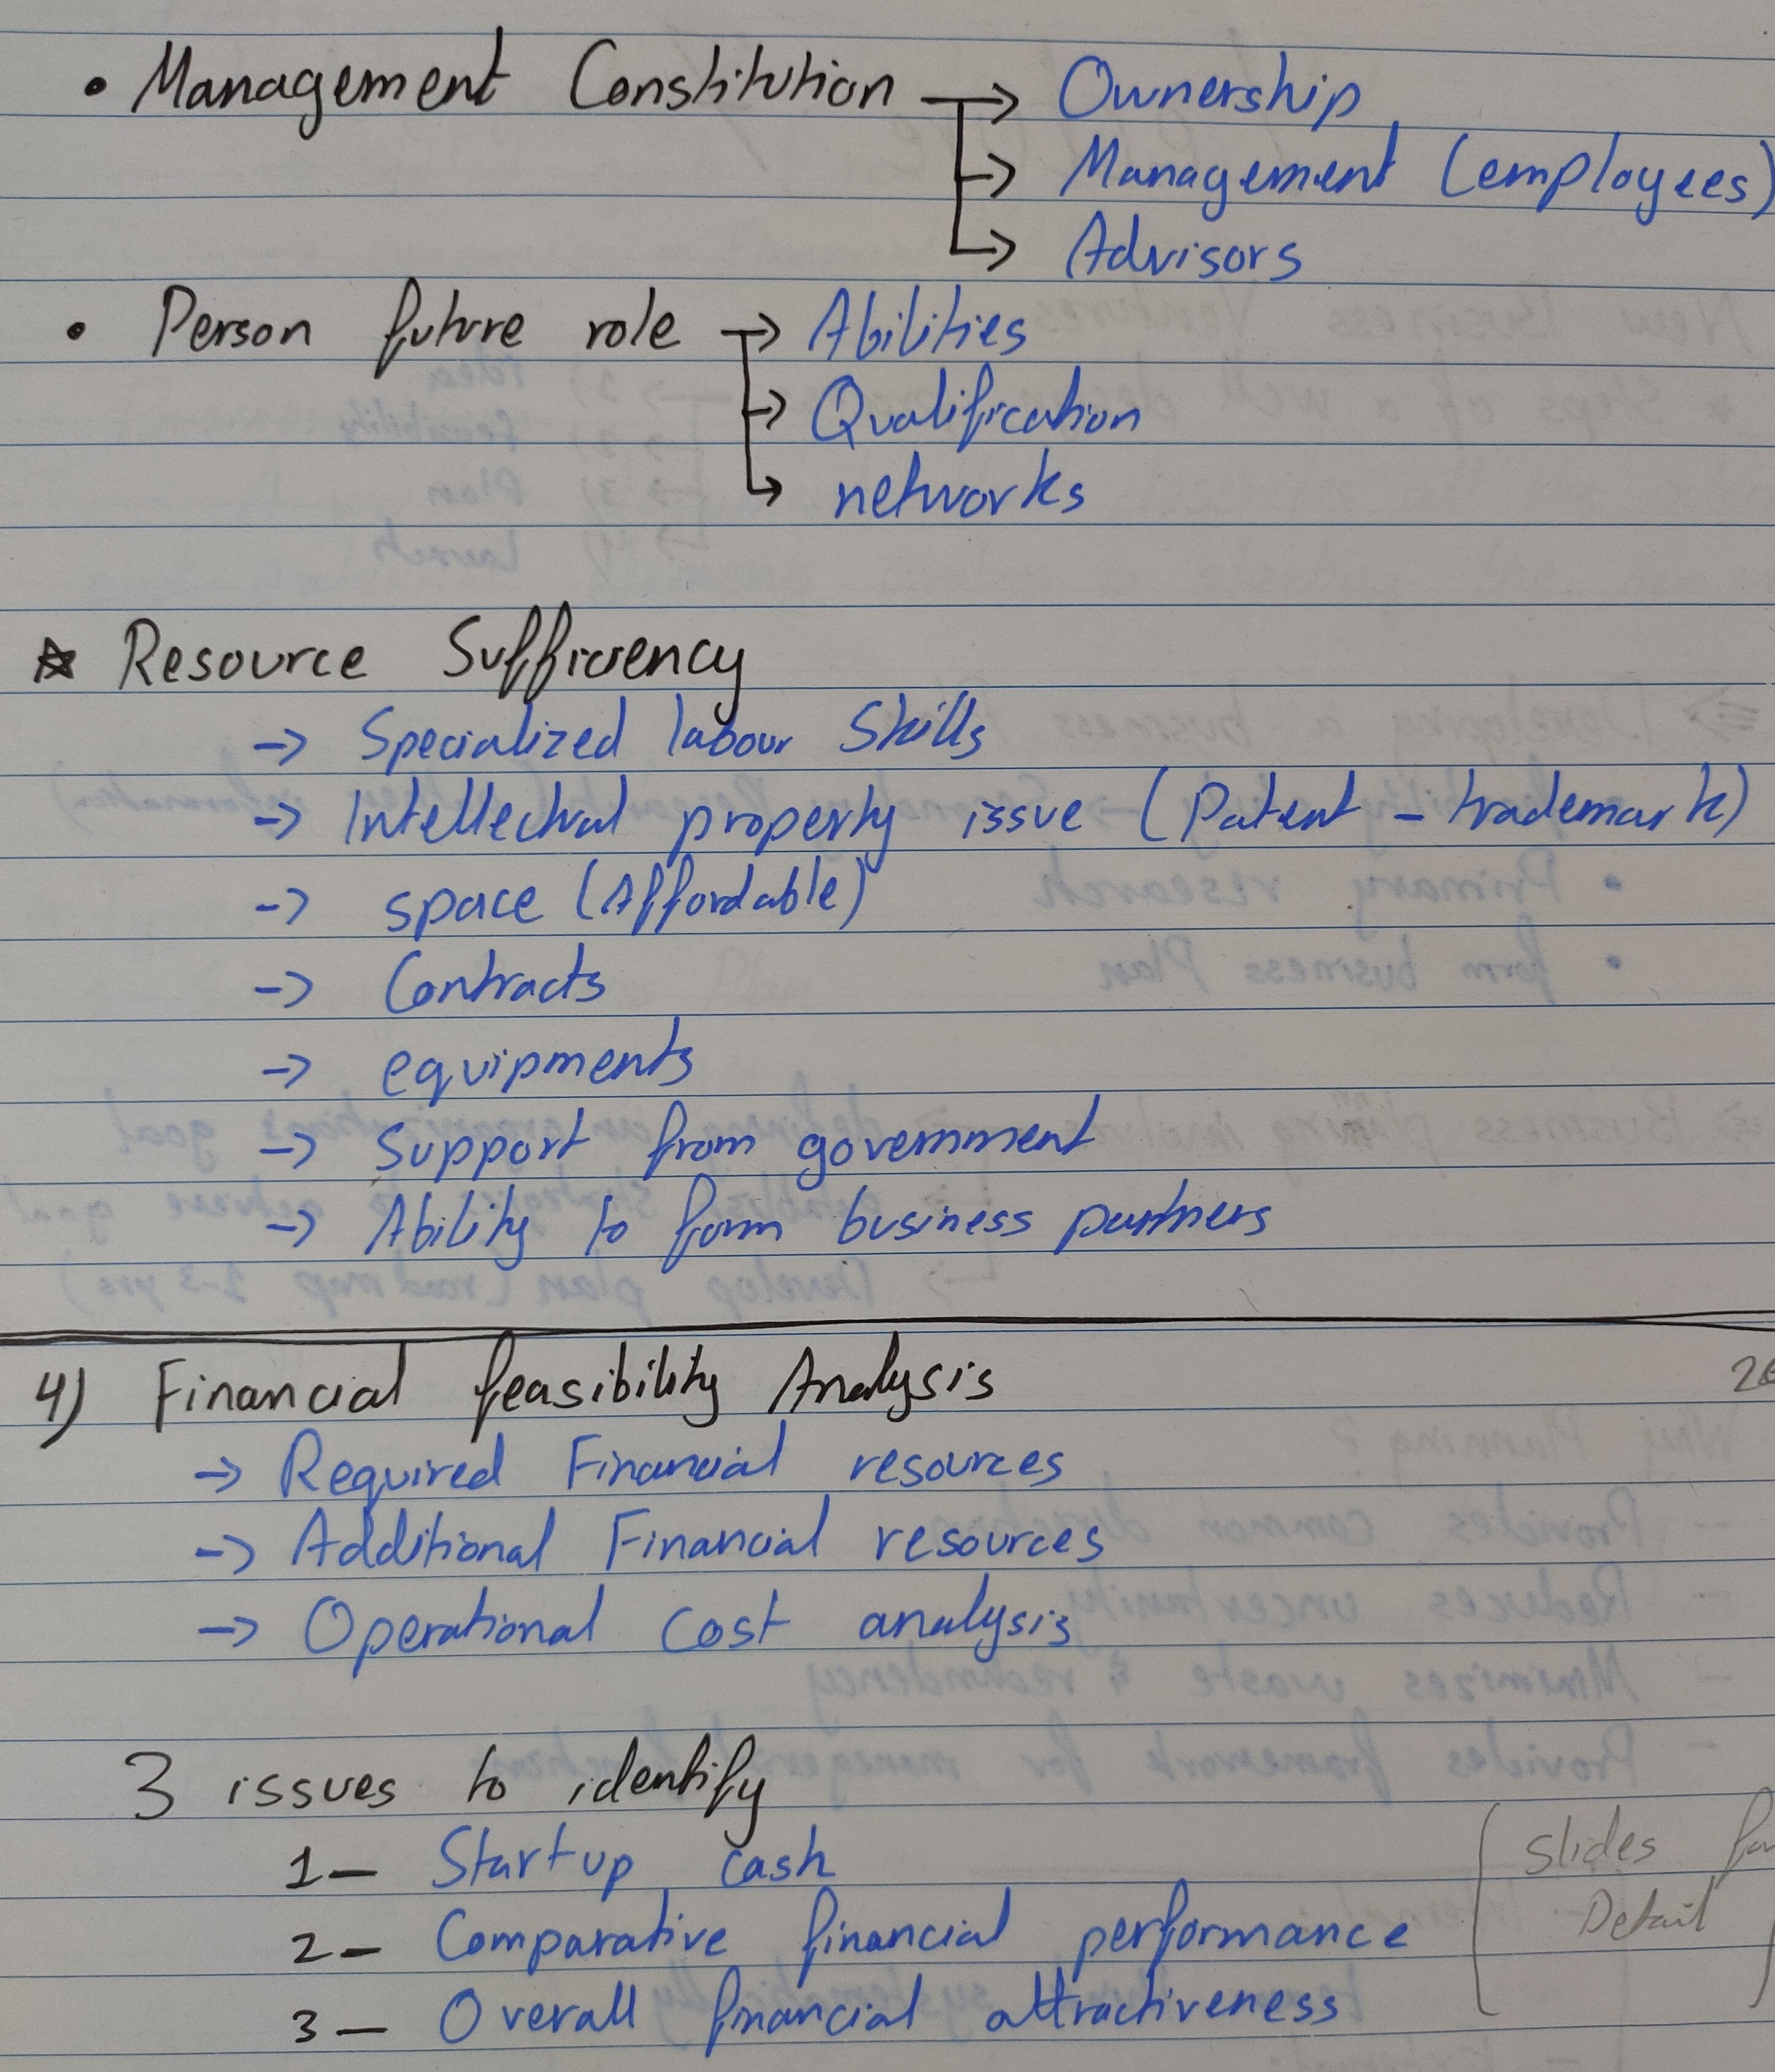 • Management Constitution → Ownership
→ Management (employees)
→ Advisors
• Person future role → Abilities
→ Qualification
→ networks
☆ Resource Sufficiency
→ Specialized labour Skills
→ Intellectual property issue (Patent - trademark)
→ space (Affordable)
→ Contracts
→ equipments
→ Support from government
→ Ability to form business partners
4) Financial feasibility Analysis
→ Required Financial resources
→ Additional Financial resources
→ Operational cost analysis
3 issues to identify
1- Startup cash
2- Comparative financial performance
3- Overall financial attractiveness
Slides
Detail